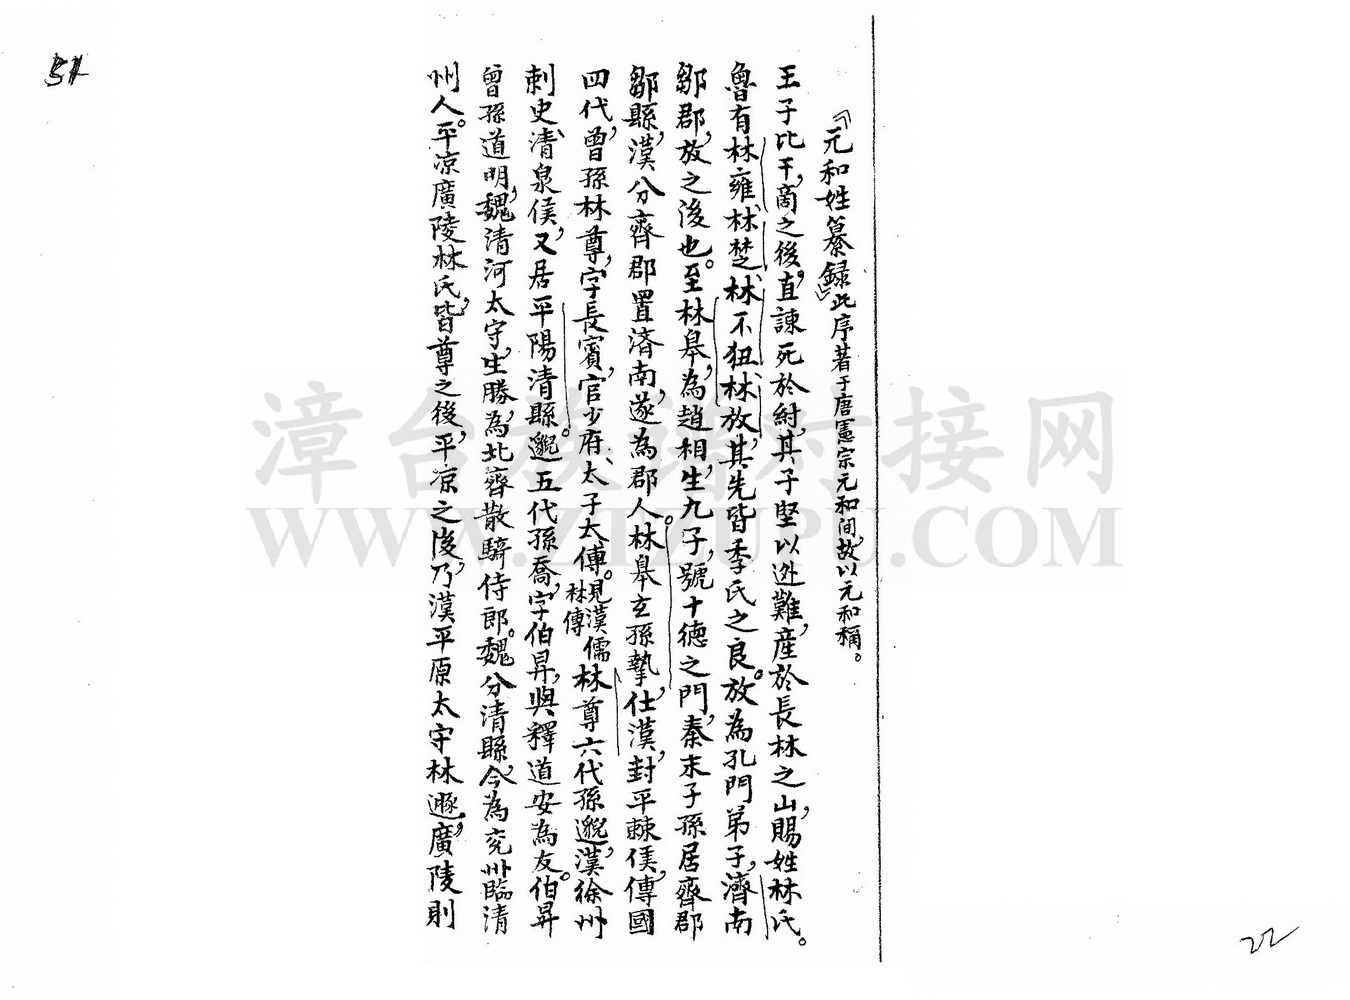 『元和姓纂録』此序著于唐憲宗元和间,故以元和稱。
王子比干,商之後,直諫死於紂,其子堅以逃難,産於長林之山,賜姓林氏。
魯有林雍、林楚、林不狃、林放,其先皆季氏之良。放為孔門弟子,濟南
鄒郡,放之後也。至林皋,為趙相,生九子,號十德之門,秦末子孫居齊郡
鄒縣,漢分齊郡置済南,遂為郡人。林皋玄孫摯,仕漢,封平棘侯,傳國
四代,曾孫林尊,字長賓,官少府、太子太傅。見漢儒林傳林尊六代孫邈,漢徐州
刺史、清泉侯,又居平陽清縣。邈五代孫喬,字伯昇,與釋道安為友。伯昇
曾孫道明,魏清河太守,生勝,為北齊散騎侍郎。魏分清縣,今為兖州臨清
州人。平凉廣陵林氏,皆尊之後,平凉之後,乃漢平原太守林遯,廣陵則
51
22
漳台族谱对接网
WWW.ZTZUPU.COM